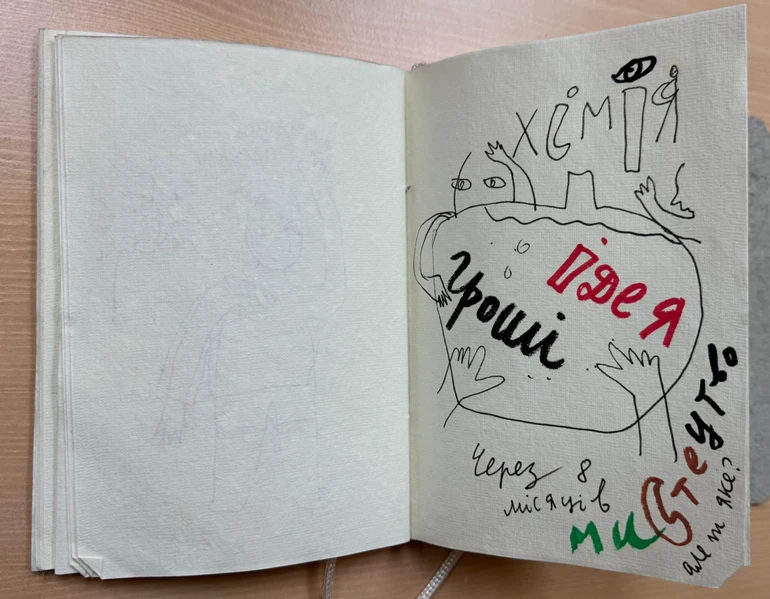 хімія
ідея
гроші
Через 8
місяців
мистеутво
але ж яке?